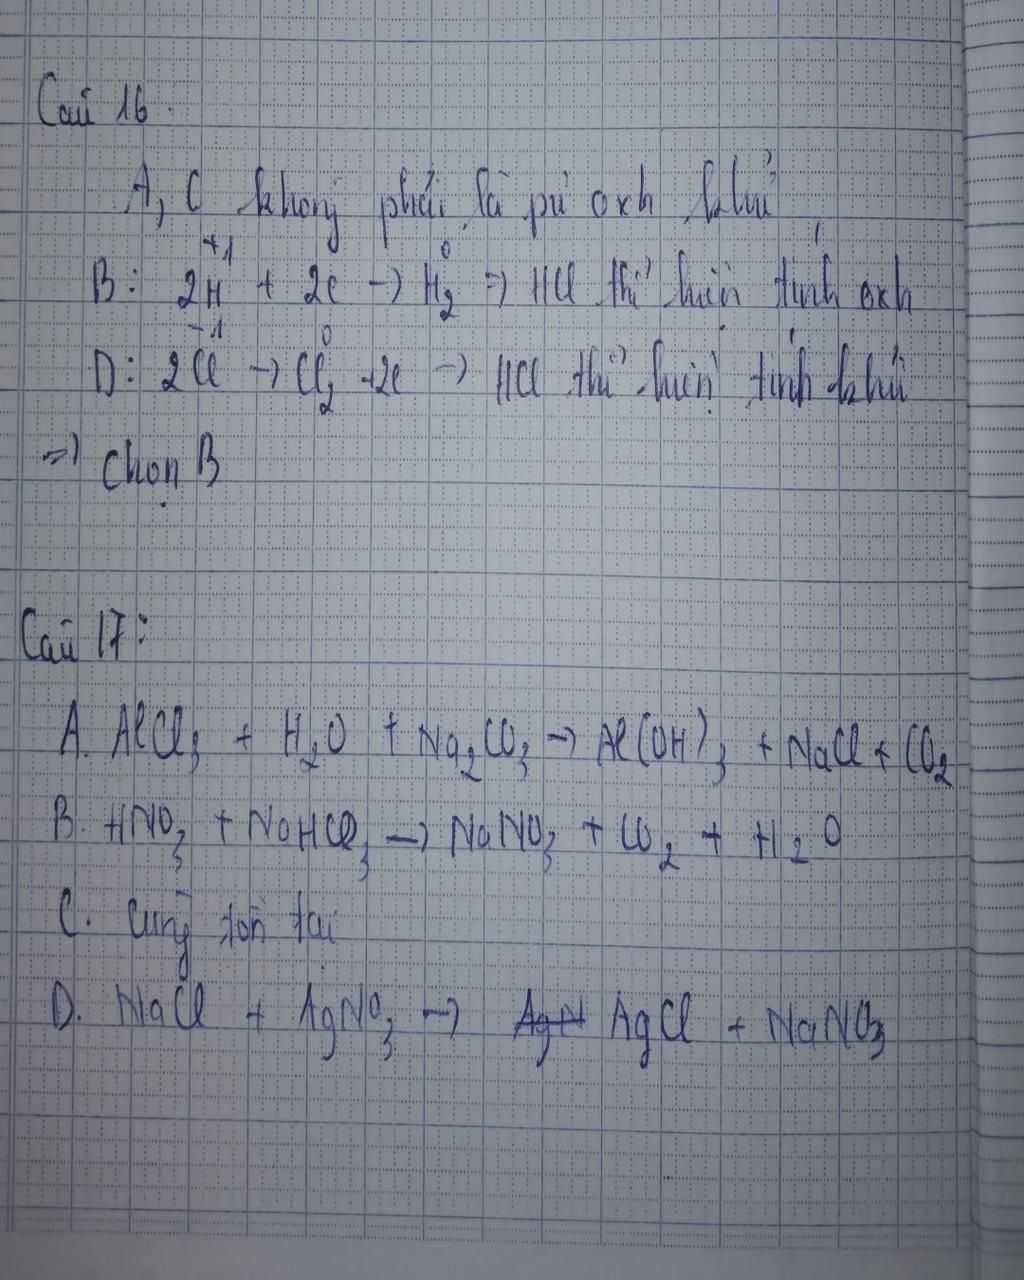 Câu 16.
A, C không phải là pứ oxh khử
B: 2H⁺¹ + 2e → H₂⁰ ⇒ HCl thể hiện tính oxh
D: 2Cl⁻¹ → Cl₂⁰ + 2e → HCl thể hiện tính khử
⇒ Chọn B
Câu 17:
A. AlCl₃ + H₂O + Na₂CO₃ → Al(OH)₃ + NaCl + CO₂
B. HNO₃ + NaHCO₃ → NaNO₃ + CO₂ + H₂O
C. Cùng tồn tại
D. NaCl + AgNO₃ → AgN AgCl + NaNO₃